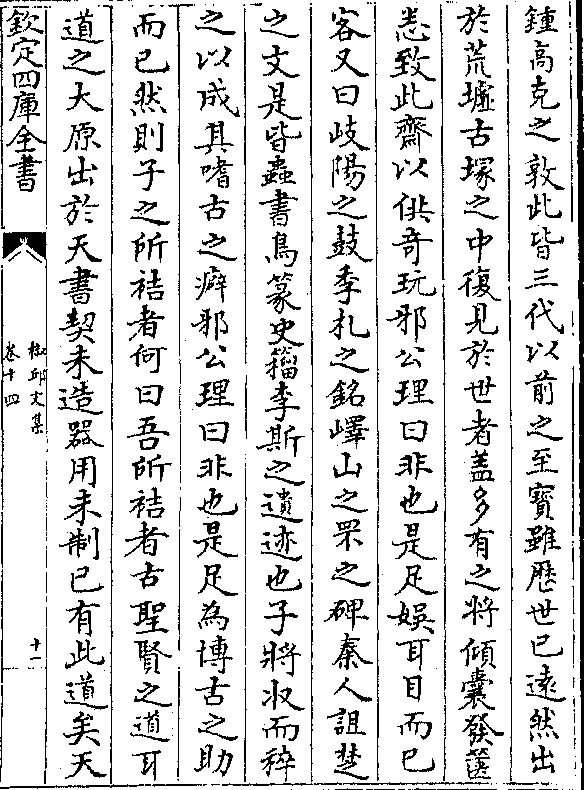 鍾高克之敦此皆三代以前之至寳雖歴世已逺然出
於荒墟古塚之中復見於世者盖多有之將傾囊發篋
悉致此齋以供竒玩邪公理曰非也是足娯耳目而已
客又曰岐陽之鼓季札之銘嶧山之罘之碑秦人詛楚
之文是皆蟲書鳥篆史籀李斯之遺迹也子將收而稡
之以成其嗜古之癖邪公理曰非也是足為博古之助
而已然則子之所祜者何曰吾所祜者古聖賢之道耳
道之大原出於天書契未造器用未制已有此道矣天
欽定四庫全書
椒邱文集
卷十四
十一